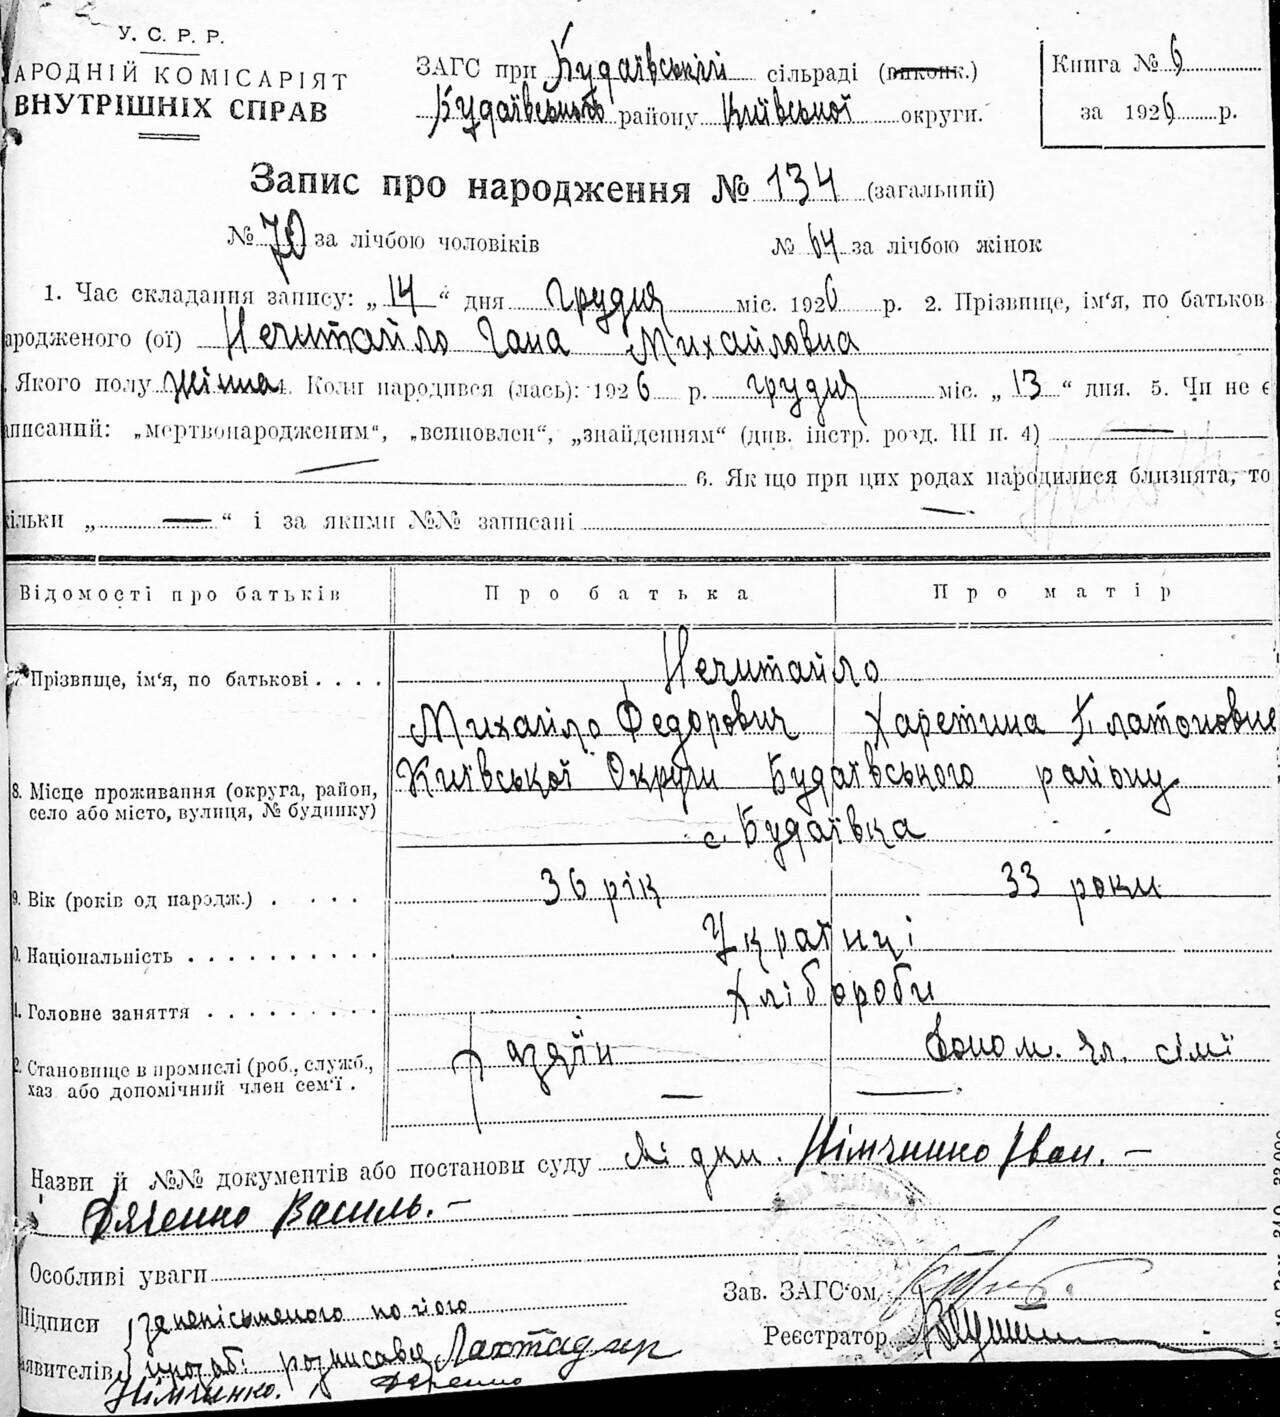 У. С. Р. Р.
АРОДНІЙ КОМІСАРІЯТ
ВНУТРІШНІХ СПРАВ
ЗАГС при Будаївській сільраді (виконк.)
Будаївського району Київської округи.
Книга № 6
за 1926 р.
Запис про народження № 134 (загальний)
№ 70 за лічбою чоловіків № 64 за лічбою жінок
1. Час складання запису: „14“ дня грудня міс. 1926 р. 2. Прізвище, ім'я, по батьков
ародженого (ої) Нечитайло Гана Михайловна
Якого полу жіноча 4. Коли народився (лась): 1926 р. грудня міс. „13“ дня. 5. Чи не є
аписаний: „мертвонародженим“, „всиновлен“, „знайденням“ (див. інстр. розд. III п. 4) —
— 6. Як що при цих родах народилися близнята, то
ільки „ — “ і за якими №№ записані —
Відомості про батьків Про батька Про матір
7. Прізвище, ім'я, по батькові . . . . Нечитайло
Михайло Федорович Харетина Платоновна
8. Місце проживання (округа, район, село або місто, вулиця, № будинку) Київської Округи Будаївського району
с. Будаївка
9. Вік (років од народж.) . . . . . 36 рік 33 роки
0. Національність . . . . . . . . . . Українці
1. Головне заняття . . . . . . . . . Хлібороби
2. Становище в промислі (роб., служб., хаз або допомічний член сем'ї . хаздяїн допом. чл. сімї
— —
Назви й №№ документів або постанови суду Свідки. Німченко Іван. —
Дяченко Василь. —
Особливі уваги
Зав. ЗАГС'ом
Підписи за неписьменого по його
Реєстратор
явителів прозьбі розписався
Німченко. Дяченко